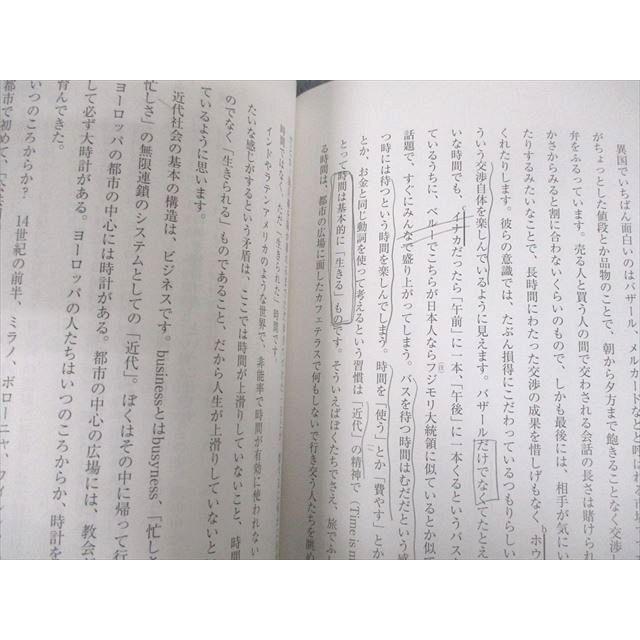 異国でいちばん面白いのはバザール、メルカードなどと呼ばれる市場
がちょっとした値段とか品物のことで、朝から夕方まで飽きることなく交渉し
弁をふるっています。売る人と買う人の間で交わされる会話の長さは賭けられ
かさからみると割に合わないくらいのもので、しかも最後には、相手が気にい
たりするみたいなことで、長時間にわたった交渉の成果を惜しげもなく、ホウ
くれたりします。彼らの意識では、たぶん損得にこだわっているつもりらしい
ういう交渉自体を楽しんでいるように見えます。バザールだけでなくてたとえ
いな時間でも、イナカだったら「午前」に一本、「午後」に一本くるというバス
ているうちに、ペルーでこちらが日本人ならフジモリ大統領に似ているとか似て
話題で、すぐにみんなで盛り上がってしまう。バスを待つ時間はむだだという感
つ時には待つという時間を楽しんでしまう。時間を「使う」とか「費やす」とか
とか、お金と同じ動詞を使って考えるという習慣は「近代」の精神で（Time is m
とって時間は基本的に「生きる」ものです。そういえばぼくたちでさえ、旅でふし
る時間は、都市の広場に面したカフェテラスで何もしないで行き交う人たちを眺め
時間ではなく、ただ「生きられた」時間です。
インドやラテンアメリカのような世界で、非能率で時間が有効に使われない
たいな感じがするという矛盾は、ここでは時間が上滑りしていないこと、時間
のでなく「生きられる」ものであること、だから人生が上滑りしていないと
ているように思います。
近代社会の基本の構造は、ビジネスです。businessとはbusyness、「忙しさ
忙しさ」の無限連鎖のシステムとしての「近代」。ぼくはその中に帰って行
ヨーロッパの都市の中心には時計がある。都市の中心の広場には、教会
して必ず大時計がある。ヨーロッパの人たちはいつのころからか、時計を
育んできた。
いつのころからか？　14世紀の前半、ミラノ、ボローニャ、フィレン
都市で初めて、